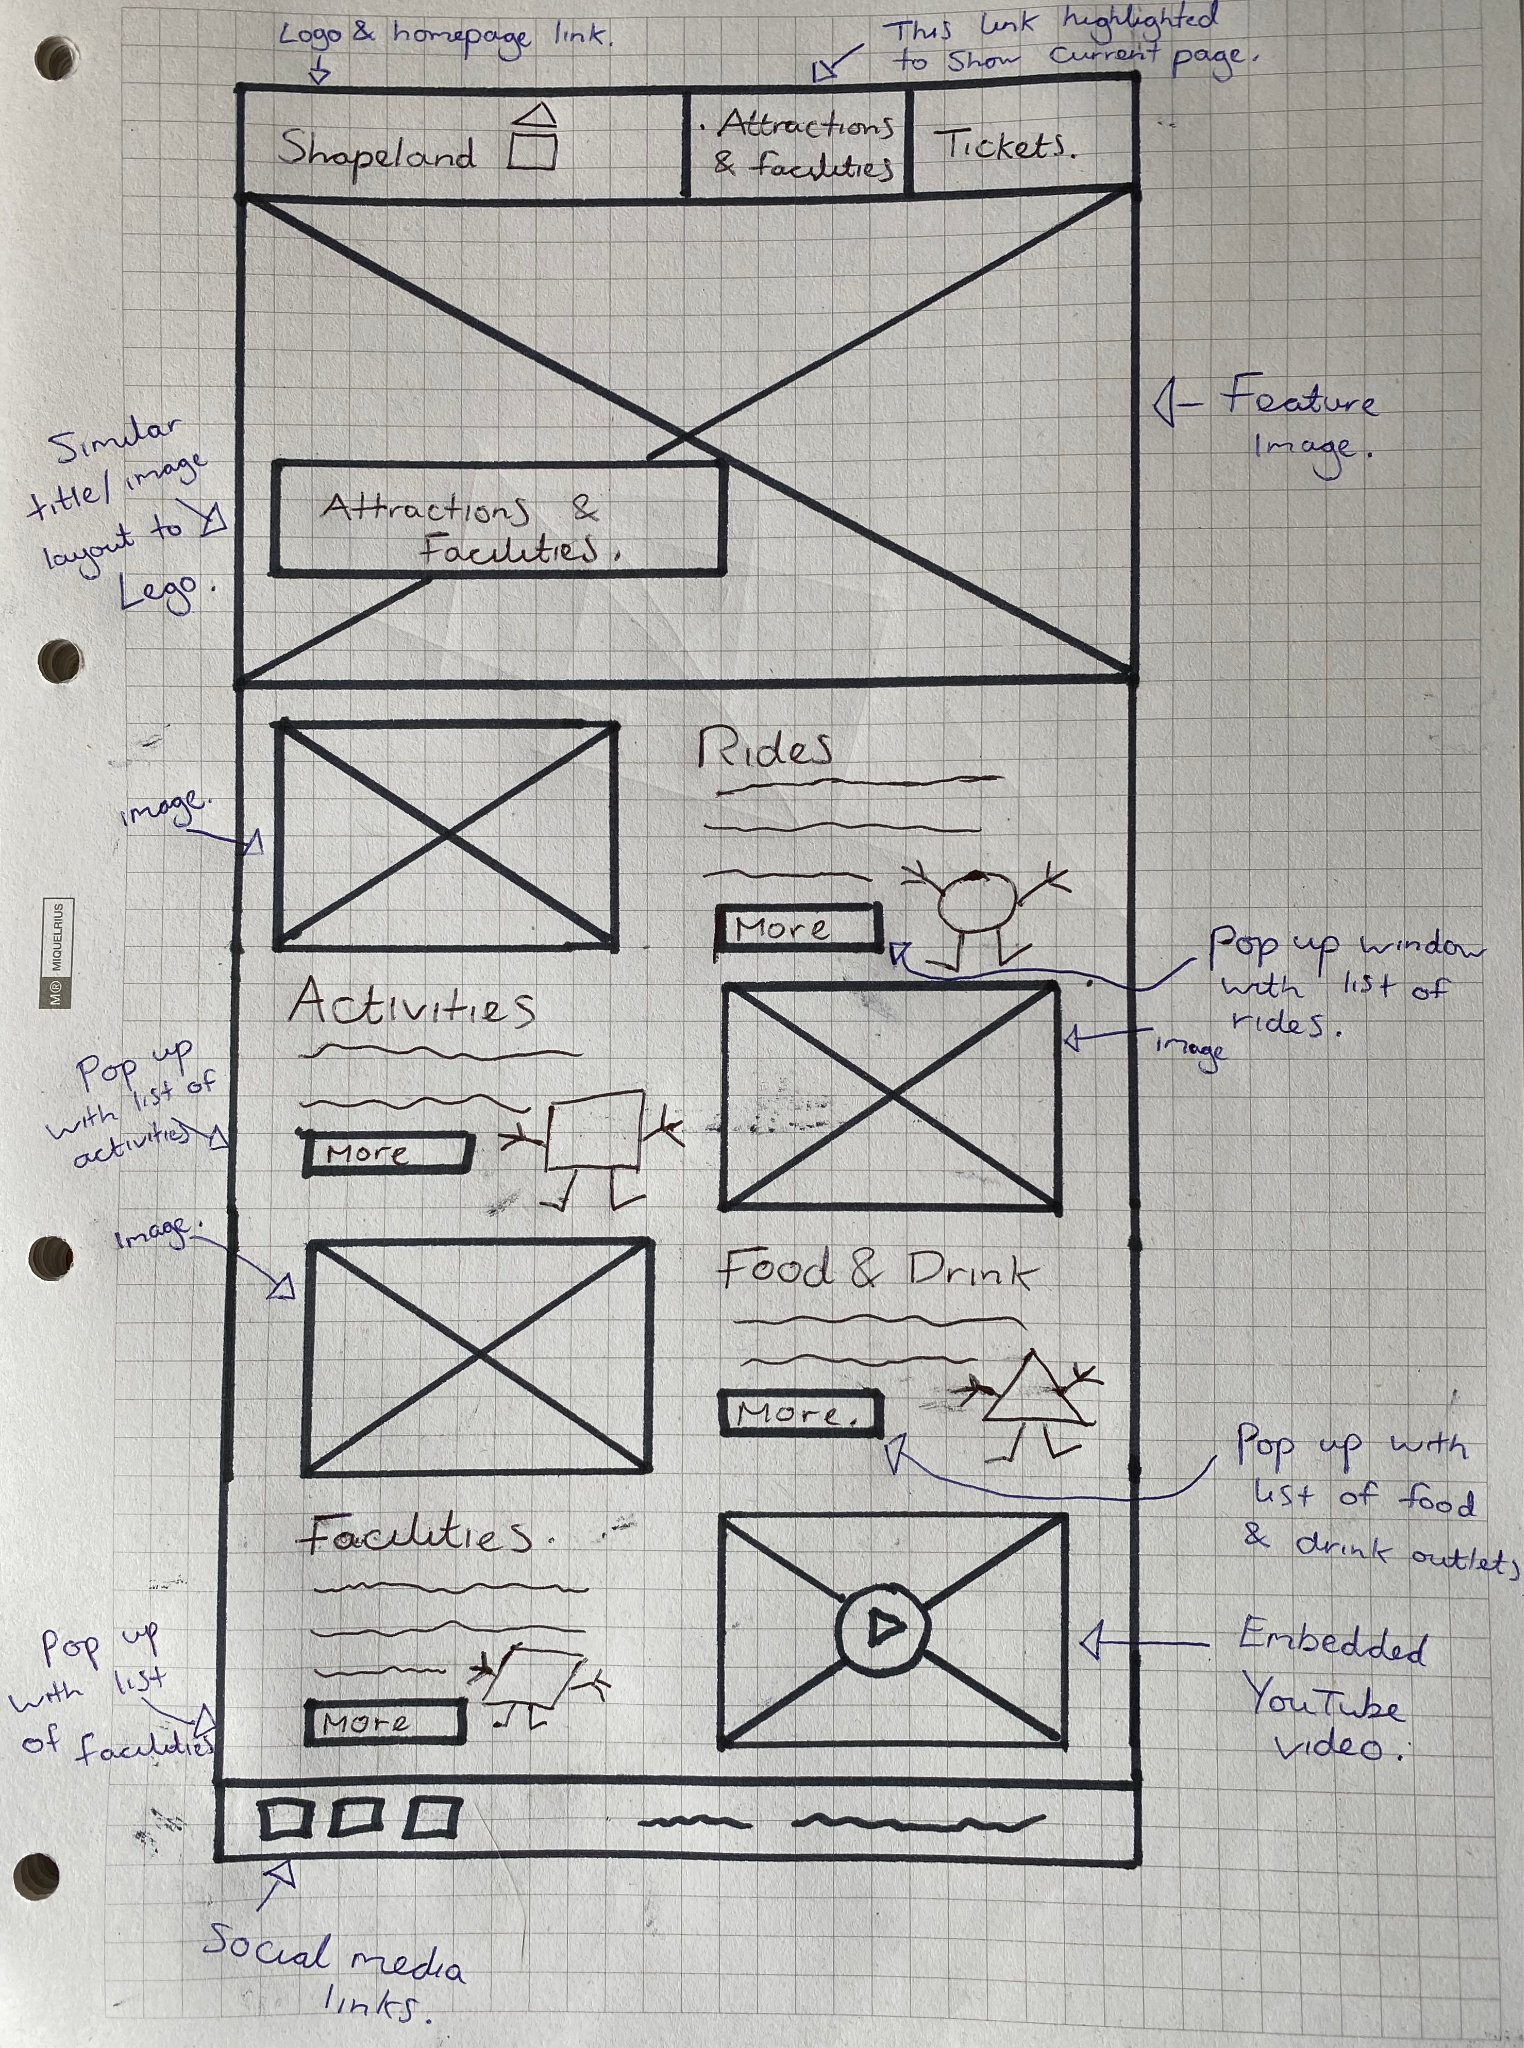 Logo & homepage link.
This link highlighted
to show current page.
Shapeland
. Attractions
& facilities
Tickets.
Feature
Image.
Similar
title/image
layout to
Lego.
Attractions &
Facilities.
Rides
image.
More
Pop up window
with list of
rides.
Activities
image
Pop up
with list of
activities
More
M® MIQUELRIUS
Image.
Food & Drink
More.
Pop up with
list of food
& drink outlets
Facilities.
Embedded
YouTube
video.
Pop up
with list
of facilities
More
Social media
links.